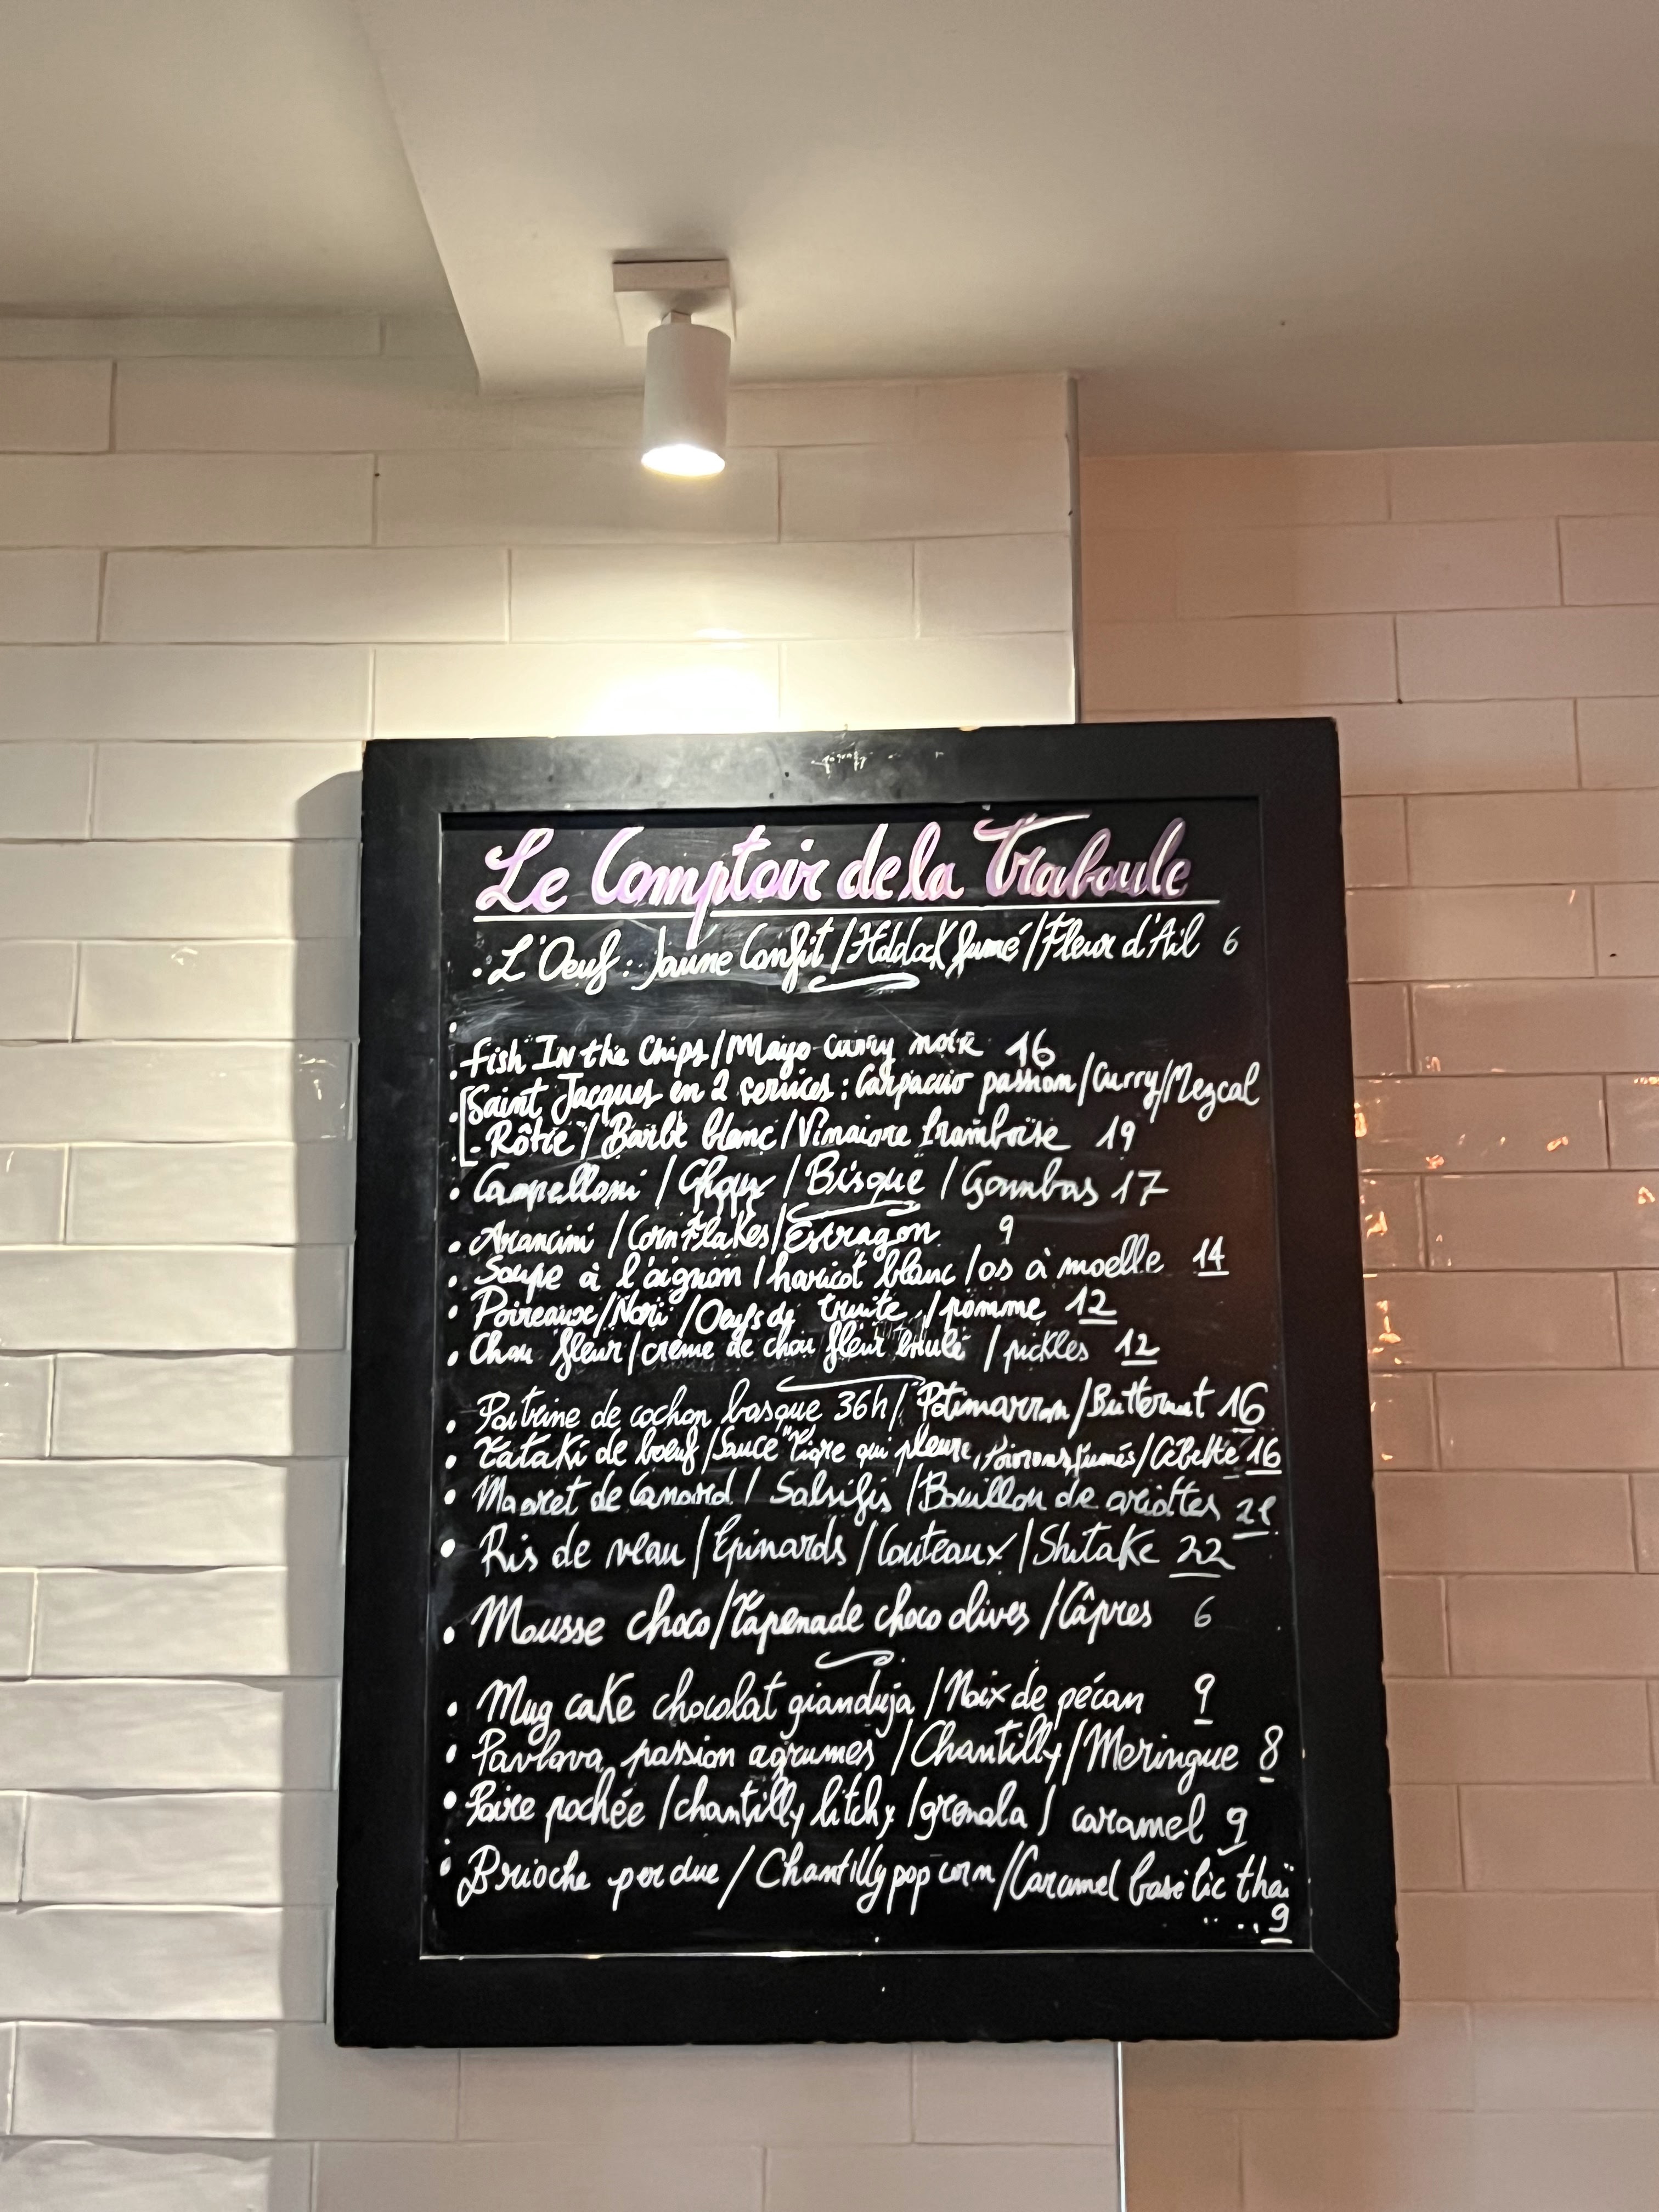 Le Comptoir de la Traboule
• L'Oeuf: Jaune Confit / Haddock fumé / Fleur d'Ail 6
• Fish In the Chips / Mayo curry noir 16
• Saint Jacques en 2 services: Carpaccio passion / Curry / Mezcal
- Rôtie / Barbe blanc / Vinaigre framboise 19
• Campelloni / / Bisque / Gambas 17
• Arancini / Corn Flakes / Estragon 9
• Soupe à l'oignon / haricot blanc / os à moelle 14
• Poireaux / Nori / Oeufs de truite / pomme 12
• Chou fleur / crème de chou fleur brulé / pickles 12
• Poitrine de cochon basque 36h / Potimarron / Butternut 16
• Tataki de boeuf / Sauce "Tigre qui pleure, Poivrons fumés / Cébette 16
• Magret de Canard / Salsifis / Bouillon de griottes
• Ris de veau / Epinards / Couteaux / Shitake 22
• Mousse choco / Tapenade choco olives / Câpres 6
• Mug cake chocolat gianduja / Noix de pécan 9
• Pavlova passion agrumes / Chantilly / Meringue 8
• Poire pochée / chantilly litchy / grenola / caramel 9
• Brioche perdue / Chantilly pop corn / Caramel basilic thaï
9